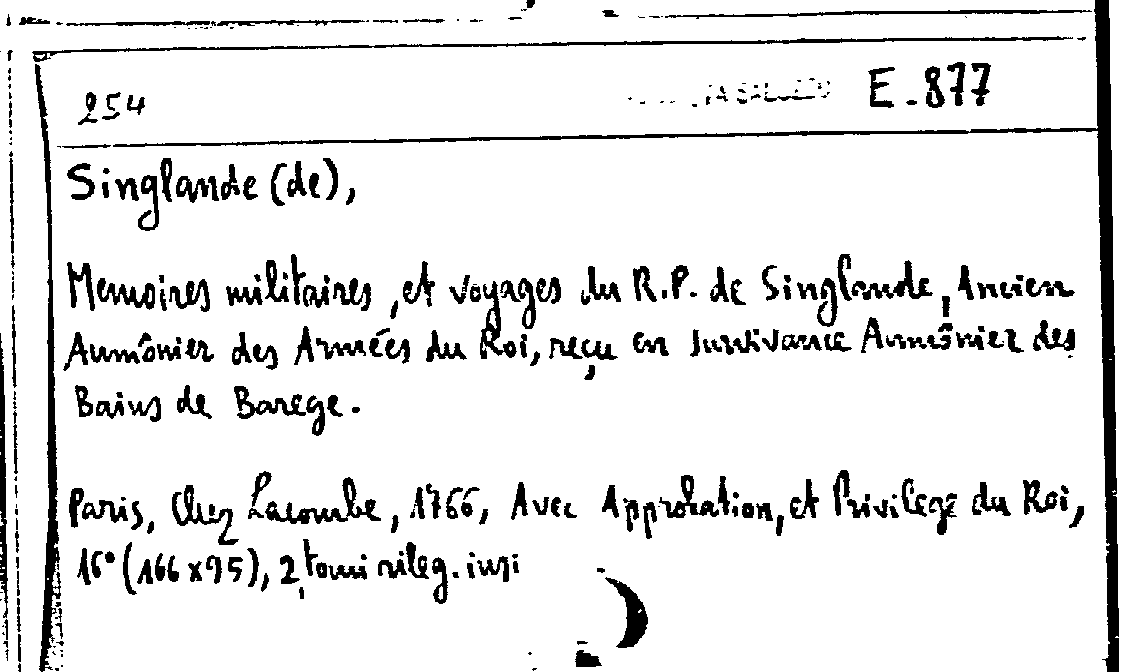 254 E.877
Singlande (de),
Memoires militaires, et voyages du R.P. de Singlande, Ancien
Aumônier des Armées du Roi, reçu en survivance Aumônier des
Bains de Barege.
Paris, Chez Lacombe, 1766, Avec Approbation, et Privilege du Roi,
16° (166 x 95), 2 tomi rileg.